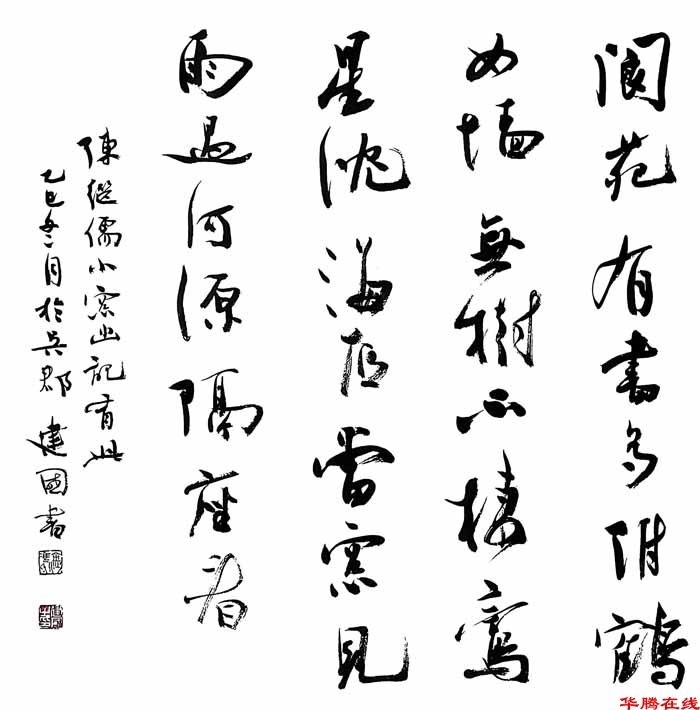 閬苑有書多附鶴
女墻無樹不棲鸞
星沈海底當窓見
雨過河源隔座看
陳繼儒小窓幽記有此
乙巳冬月於吳郡 建國書
华腾在线